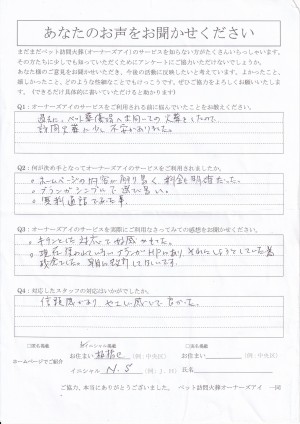 あなたのお声をお聞かせください
まだまだペット訪問火葬(オーナーズアイ)のサービスを知らない方がたくさんいらっしゃいます。
その方たちに少しでも知っていただくためにアンケートにご協力いただけないでしょうか。
あなた様のご意見をお聞かせいただき、今後の活動に反映したいと考えています。よかったこと、
嬉しかったこと、どのような些細なことでもけっこうです。ぜひご協力をよろしくお願いいたします。
(できるだけ具体的に書いていただけると助かります。)
Q1：オーナーズアイのサービスをご利用される前に悩んでいたことをお聞かせください。
過去に、ペット葬儀場へ
訪問火葬に少し不安がありました。
Q2：何が決め手となってオーナーズアイのサービスをご利用されましたか。
○ホームページの内容が解り易く、料金も明確だった。
○プランがシンプルで選び易い。
Q3：オーナーズアイのサービスを実際にご利用なさってみての感想をお聞かせください。
○キチンとした対応で好感がもてた。
Q4：対応したスタッフの対応はいかがでしたか。
信頼感があり やさしい感じで良かった。
ホームページでご紹介
お住まい 板橋区 (例：中央区)
お住まい (例：中央区)
イニシャル N.S (例：J.H)
氏名
ご協力、本当にありがとうございました。 ペット訪問火葬オーナーズアイ 一同